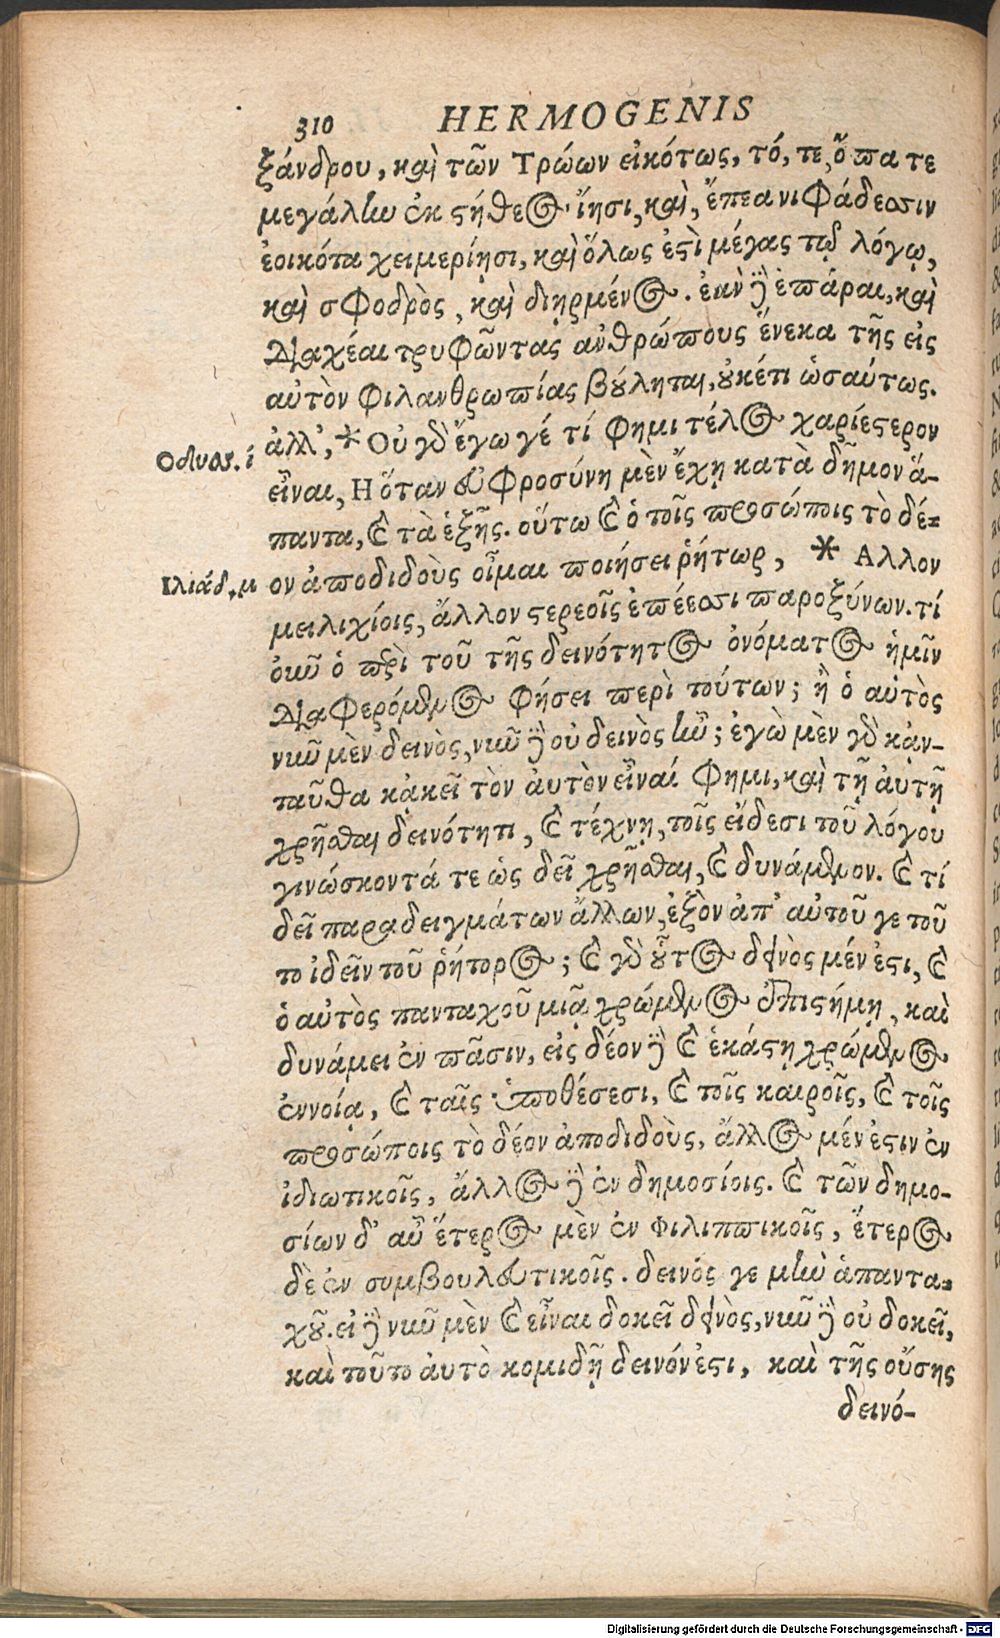 310 HERMOGENIS
ξάνδρου, καὶ τῶν Τρώων εἰκότως, τό, τε, ὄπα τε
μεγάλην ἐκ στήθεος ἵησι, καὶ, ἔπεα νιφάδεσσιν
ἐοικότα χειμερίῃσι, καὶ ὅλως ἐστὶ μέγας τῷ λόγῳ,
καὶ σφοδρὸς, καὶ διῃρμένος. ἐὰν δὲ ἐπᾶραι, καὶ
διαχέαι τρυφῶντας ἀνθρώπους ἕνεκα τῆς εἰς
αὐτὸν φιλανθρωπίας βούληται, οὐκέτι ὡσαύτως.
Οδυσσ. ί
ἀλλ', * Οὐ γὰρ ἔγωγέ τί φημι τέλος χαριέστερον
εἶναι, Η ὅταν εὐφροσύνη μὲν ἔχῃ κατὰ δῆμον ἅ-
παντα, καὶ τὰ ἑξῆς. οὕτω καὶ ὁ τοῖς προσώποις τὸ δέ-
Ιλιάδ. μ
ον ἀποδιδοὺς οἶμαι ποιήσει ῥήτωρ, * Αλλον
μειλιχίοις, ἄλλον στερεοῖς ἐπέεσσι παροξύνων. τί
οὖν ὁ περὶ τοῦ τῆς δεινότητος ὀνόματος ἡμῖν
διαφερόμενος φήσει περὶ τούτων; ἢ ὁ αὐτὸς
νῦν μὲν δεινὸς, νῦν δὲ οὐ δεινὸς ἦν; ἐγὼ μὲν γὰρ κἀν-
ταῦθα κἀκεῖ τὸν αὐτὸν εἶναί φημι, καὶ τῇ αὐτῇ
χρῆσθαι δεινότητι, καὶ τέχνῃ, τοῖς εἴδεσι τοῦ λόγου
γινώσκοντά τε ὡς δεῖ χρῆσθαι, καὶ δυνάμενον. καὶ τί
δεῖ παραδειγμάτων ἄλλων, ἐξὸν ἀπ' αὐτοῦ γε τοῦ
το ἰδεῖν τοῦ ῥήτορος; καὶ γὰρ οὗτος δεινὸς μέν ἐστι, καὶ
ὁ αὐτὸς πανταχοῦ μιᾷ χρώμενος ἐπιστήμῃ, καὶ
δυνάμει ἐν πᾶσιν, εἰς δέον δὲ καὶ ἑκάστῃ χρώμενος
ἐννοίᾳ, καὶ ταῖς ὑποθέσεσι, καὶ τοῖς καιροῖς, καὶ τοῖς
προσώποις τὸ δέον ἀποδιδοὺς, ἄλλος μέν ἐστιν ἐν
ἰδιωτικοῖς, ἄλλος δὲ ἐν δημοσίοις. καὶ τῶν δημο-
σίων δ' αὖ ἕτερος μὲν ἐν Φιλιππικοῖς, ἕτερος
δὲ ἐν συμβουλευτικοῖς. δεινός γε μὴν ἁπαντα-
χοῦ. εἰ δὲ νῦν μὲν καὶ εἶναι δοκεῖ δεινὸς, νῦν δὲ οὐ δοκεῖ,
καὶ τοῦτο αὐτὸ κομιδῇ δεινόν ἐστι, καὶ τῆς οὔσης
δεινό-
Digitalisierung gefördert durch die Deutsche Forschungsgemeinschaft - DFG